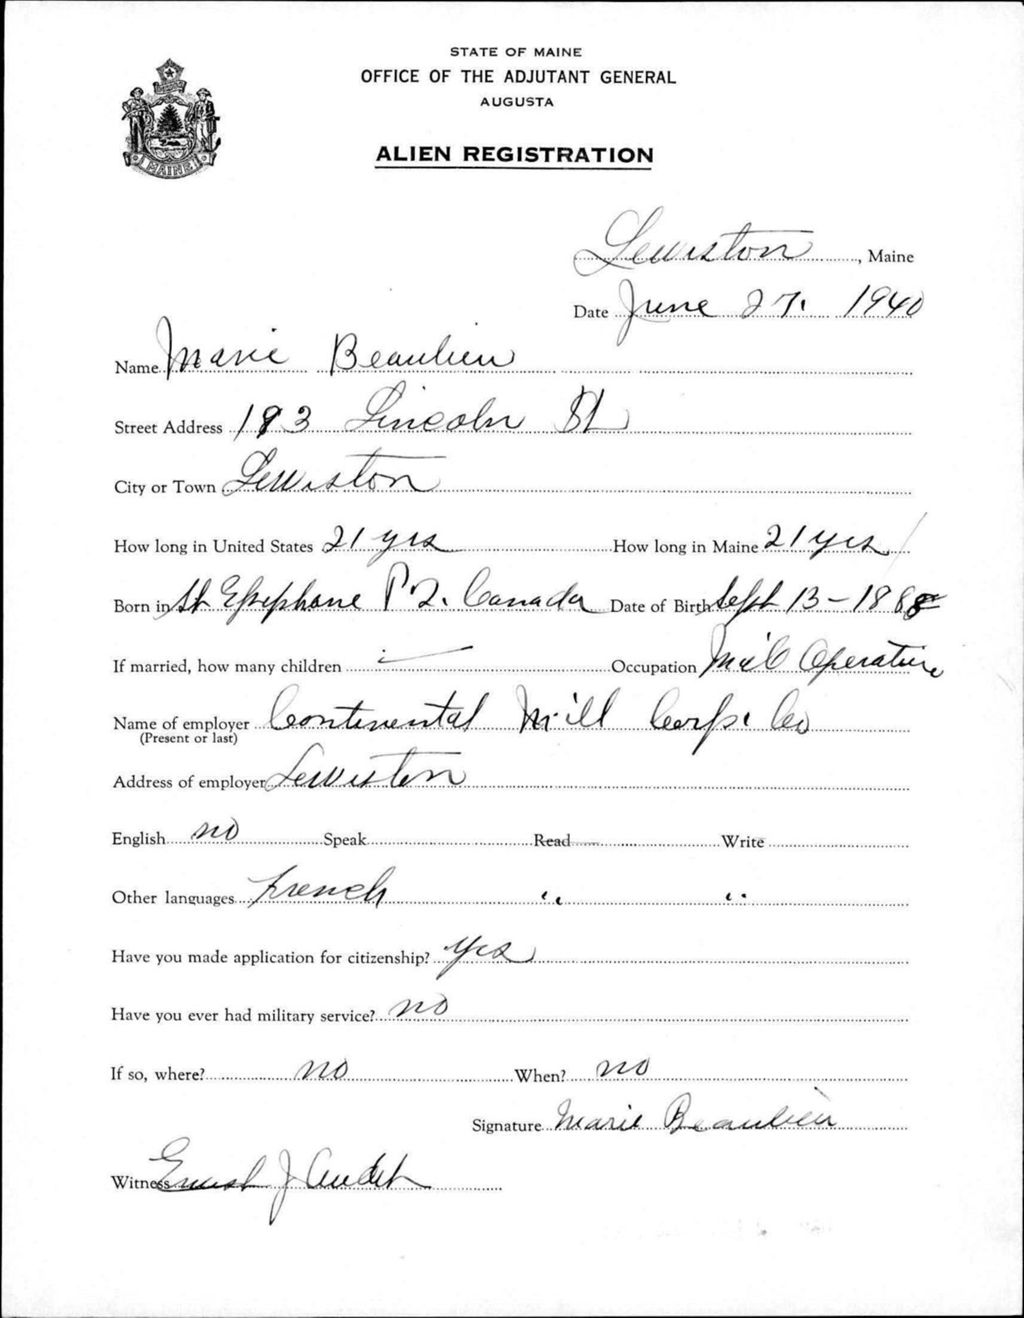 STATE OF MAINE
OFFICE OF THE ADJUTANT GENERAL
AUGUSTA
ALIEN REGISTRATION
MAINE
Lewiston, Maine
Date June 27. 1940
Name Marie Beaulieu
Street Address 183 Lincoln St
City or Town Lewiston
How long in United States 21 yrs How long in Maine 21 yrs
Born in St Epiphane P.Q. Canada Date of Birth Sept 13 - 1888
If married, how many children — Occupation Mill Operative
Name of employer Continental Mill Corp. Co
(Present or last)
Address of employer Lewiston
English no Speak Read Write
Other languages French " "
Have you made application for citizenship? Yes
Have you ever had military service? no
If so, where? no When? no
Signature Marie Beaulieu
Witness Ernest J Audet